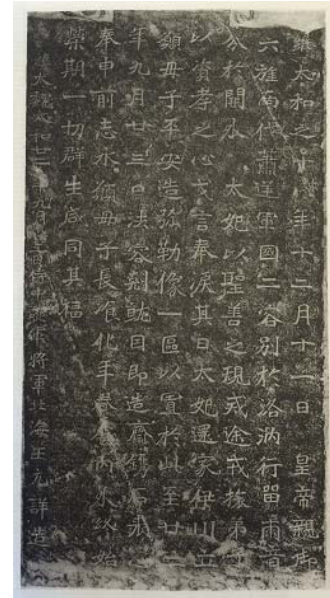 維太和之十八年十二月十一日皇帝親御
六旌南伐蕭逆軍國二容別於洛汭行留兩音
分於闕外太妃以聖善之規戒途戒旅弟子
以資孝之心戈言奉淚其日太妃還家伊川立
願母子平安造弥勒像一區以置於此至廿二
年九月廿三日法容剋就因即造齋鐫石表心
奉申前志永願母子長瓞化年眷屬內外終始
榮期一切群生咸同其福
大魏太和廿二年九月廿三日侍中護軍將軍北海王元詳造